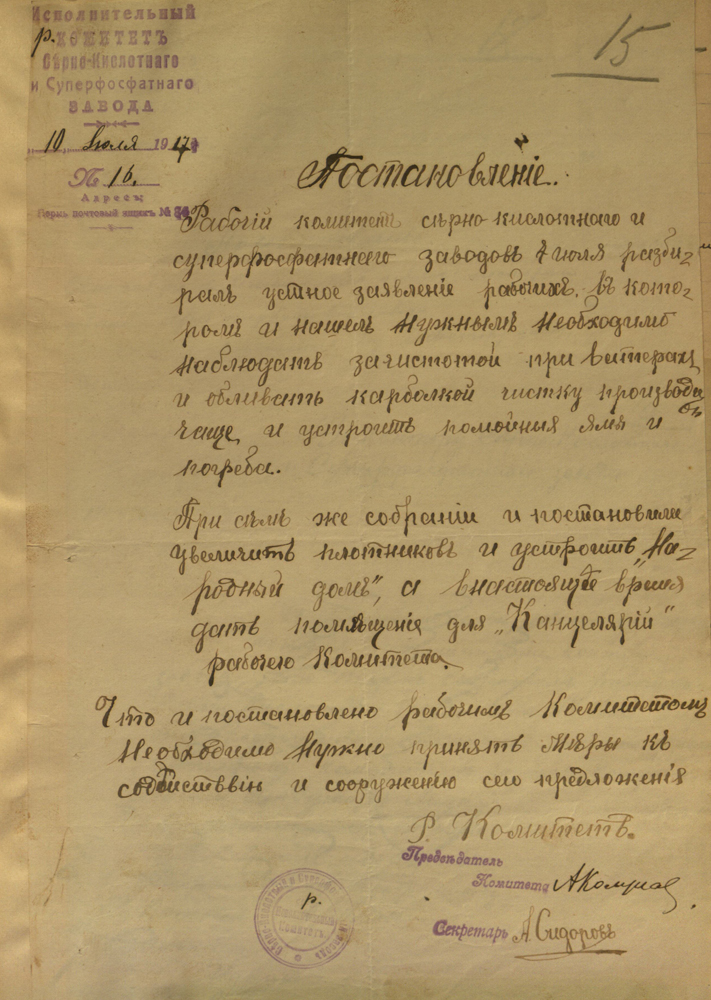 Исполнительный
р. КОМИТЕТЪ
Сѣрно-Кислотнаго
и Суперфосфатнаго
ЗАВОДА
10 Июля 1917
№ 16.
Адресъ:
Пермь почтовый ящикъ №
15
Постановленіе.
Рабочій комитетъ сѣрно-кислотнаго и
суперфосфатнаго заводовъ 7 июля разби-
ралъ устное заявленіе рабочихъ. Въ кото-
ромъ и нашелъ нужнымъ необходимо
наблюдать зачистотой при ватерахъ
и обливать карболкой чистку производи
ть
чаще и устроить помойныя ямы и
погреба.
При семъ же собраніи и постановили
увеличить плотниковъ и устроить „На-
родный домъ“, а внастоящее время
дать помѣщеніе для „Канцелярій“
рабочего Комитета.
Что и постановлено рабочимъ Комитетомъ
Необходимо Нужно принять мѣры къ
содѣйствію и сооруженію сего предложенія
Р. Комитетъ.
Председатель
Комитета
Секретарь А. Сидоровъ
р.